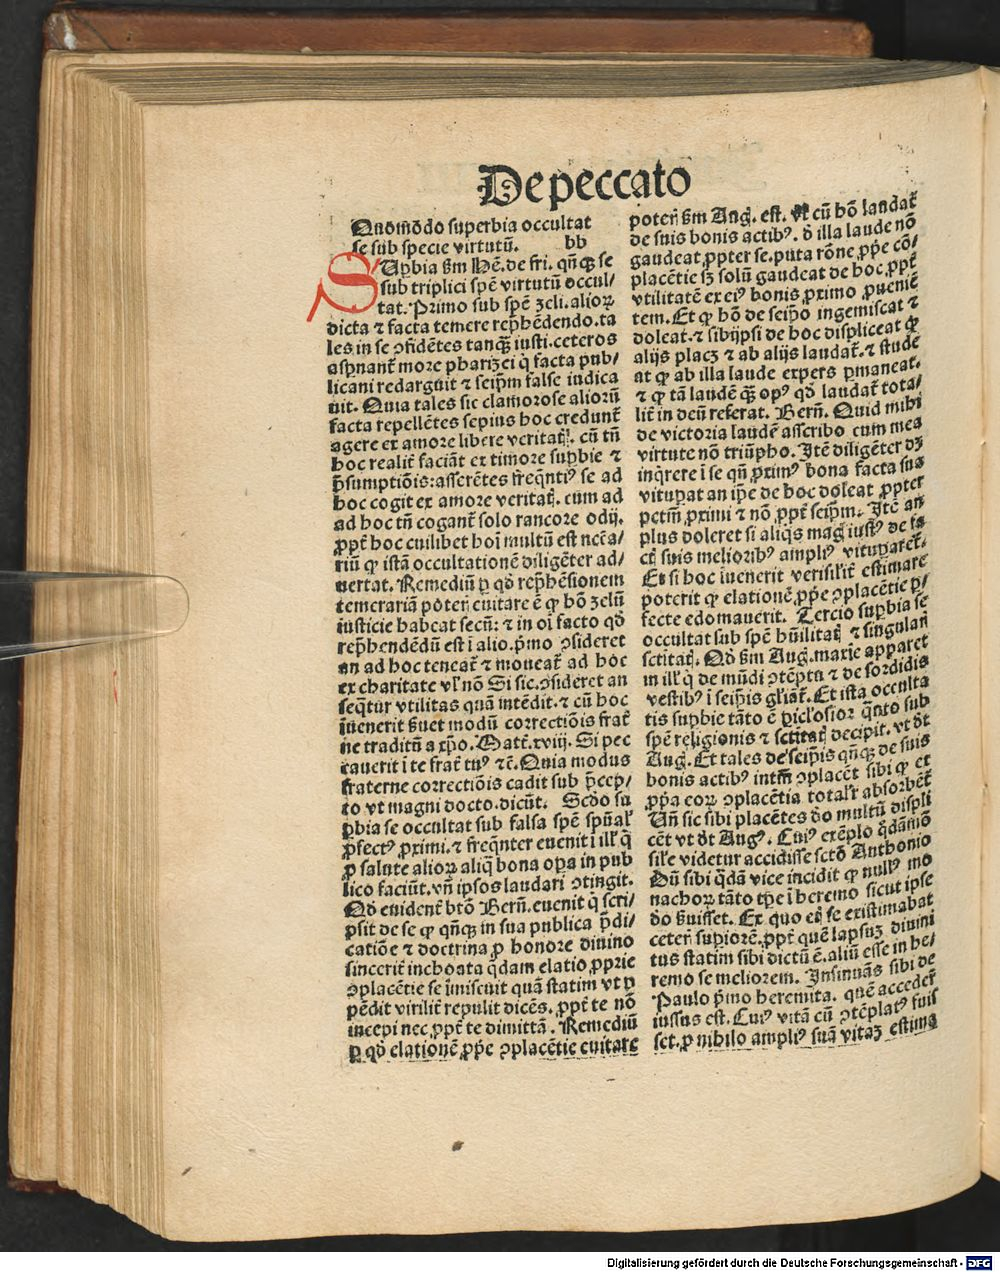 De peccato
Quomōdo superbia occultat
se sub specie virtutū. bb
SUp̱bia ẜm Hē. de fri. qn̄qȝ se
sub triplici spē virtutū occul/
tat. Primo sub spē zeli. alioꝝ
dicta ⁊ facta temere rep̄hēdendo. ta
les in se ꝯfidētes tanqȝ iusti. ceteros
asp̱nant̄ more pharizei q̇ facta pub/
licani redarguit ⁊ seip̄m false iudica
uit. Quia tales sic clamorose aliorū
facta repellētes sepius hoc credunt̄
agere ex amore libere veritatꝭ. cū tn̄
hoc realit̄ faciāt ex timore sup̱bie ⁊
p̄sumptiōis: asserētes freq̄ntiꝰ se ad
hoc cogit ex amore veritatꝭ. cum ad
ad hoc tn̄ cogant̄ solo rancore odij.
ꝓpt̄ hoc cuilibet hoī multū est ncēa/
riū ꝙ istā occultationē diligēter ad/
uertat. Remediū ꝑ qd̄ rep̄hēsionem
temerariā poterꝭ euitare ē ꝙ hō zelū
iusticie habeat secū: ⁊ in oī facto qd̄
rep̄hendēdū est ī alio. p̄mo ꝯsideret
an ad hoc teneat̄ ⁊ moueat̄ ad hoc
ex charitate vl̓ nō Si sic. ꝯsideret an
seq̄tur vtilitas quā intēdit. ⁊ cū hoc
īuenerit ẜuet modū correctiōis frat̄
ne traditū a xp̄o. Matt̄. xviij. Si pec
cauerit ī te frat̄ tuꝰ ⁊c̄. Quia modus
fraterne correctiōis cadit sub p̄cep/
to vt magni docto. dicūt. Scd̄o su
p̱bia se occultat sub falsa spē spūal̓
ꝓfectꝰ ꝓximi. ⁊ freq̄nter euenit ī ill̓ q̇
ꝓ salute alioꝝ aliq̄ bona oꝑa in pub
lico faciūt. vn̄ ipsos laudari ꝯtingit.
Qd̄ euident̄ btō Bern̄. euenit q̇ scri/
psit de se ꝙ qn̄qȝ in sua publica p̄di/
catiōe ⁊ doctrina ꝓ honore diuino
sincerit̄ inchoata q̄dam elatio ꝓprie
ꝯplacētie se īmiscuit quā statim vt ꝑ
pēdit virilit̄ repulit dicēs. ꝓpt̄ te nō
incepi nec ꝓpt̄ te dimittā. Remediū
ꝑ qd̄ elationē ꝓp̄e ꝯplacētie euitare
poterꝭ ẜm Aug. est. vt cū hō laudat̄
de suis bonis actibꝰ. d̓ illa laude nō
gaudeat ꝓpter se. puta rōne ꝓp̄e cō/
placētie sȝ solū gaudeat de hoc ꝓpt̄
vtilitatē ex eiꝰ bonis ꝓximo ꝓueniē
tem. Et ꝙ hō de seip̄o ingemiscat ⁊
doleat. ⁊ sibijpsi de hoc displiceat ꝙ
alijs placȝ ⁊ ab alijs laudat̄. ⁊ stude
at ꝙ ab illa laude expers ꝑmaneat.
⁊ ꝙ tā laudē qȝ opꝰ qd̄ laudat̄ tota/
lit̄ in deū referat. Bern̄. Quid mihi
de victoria laudē asscribo cum mea
virtute nō triūpho. Itē diligēter dȝ
inq̄rere ī se qn̄ ꝓximꝰ bona facta sua
vitupat an ip̄e de hoc doleat ꝓpter
pctm̄ ꝓximi ⁊ nō ꝓpt̄ seip̄m. Itē an
plus doleret si aliq̇s magꝭ iustꝰ de fa
ctꝭ suis melioribꝰ ampliꝰ vituparet̄.
Et si hoc īuenerit verisilit̄ estimare
poterit ꝙ elationē ꝓp̄e ꝯplacētie ꝑ/
fecte edomauerit. Tercio sup̱bia se
occultat sub spē hūilitatꝭ ⁊ singularꝭ
sctitatꝭ. Qd̄ ẜm Aug. maxie apparet
in ill̓ q̇ de mūdi ꝯtēptu ⁊ de sordidis
vestibꝰ ī seip̄is gl̓iāt̄. Et ista occulta
tis sup̱bie tāto ē ꝑicl̓osior q̄nto sub
spē religionis ⁊ sctitatꝭ decipit. vt dt̄
Aug. Et tales de seip̄is qn̄qȝ de suis
bonis actibꝰ intm̄ ꝯplacēt sibi ꝙ ex
ꝓp̄a eoꝝ ꝯplacētia total̓r absorbēt̄
Un̄ sic sibi placētes d̓o multū displi
cēt vt dt̄ Augꝰ. Cuiꝰ exēplo q̄dāmō
sil̓e videtur accidisse sctō Anthonio
Dū sibi q̄dā vice incidit ꝙ nullꝰ mo
nachoꝝ tāto tp̄e ī heremo sicut ipse
d̓o ẜuisset. Ex quo eī se existimabat
ceterꝭ sup̱iorē. ꝓpt̄ quē lapsuȝ diuini
tus statim sibi dictū ē. aliū esse in he/
remo se meliorem. Insinuās sibi de
Paulo p̄mo heremita. quē accedet̄
iussus est. Cuiꝰ vitā cū ꝯtēplatꝰ fuis
set. ꝓ nihilo ampliꝰ suā vitaȝ estima
Digitalisierung gefördert durch die Deutsche Forschungsgemeinschaft - DFG